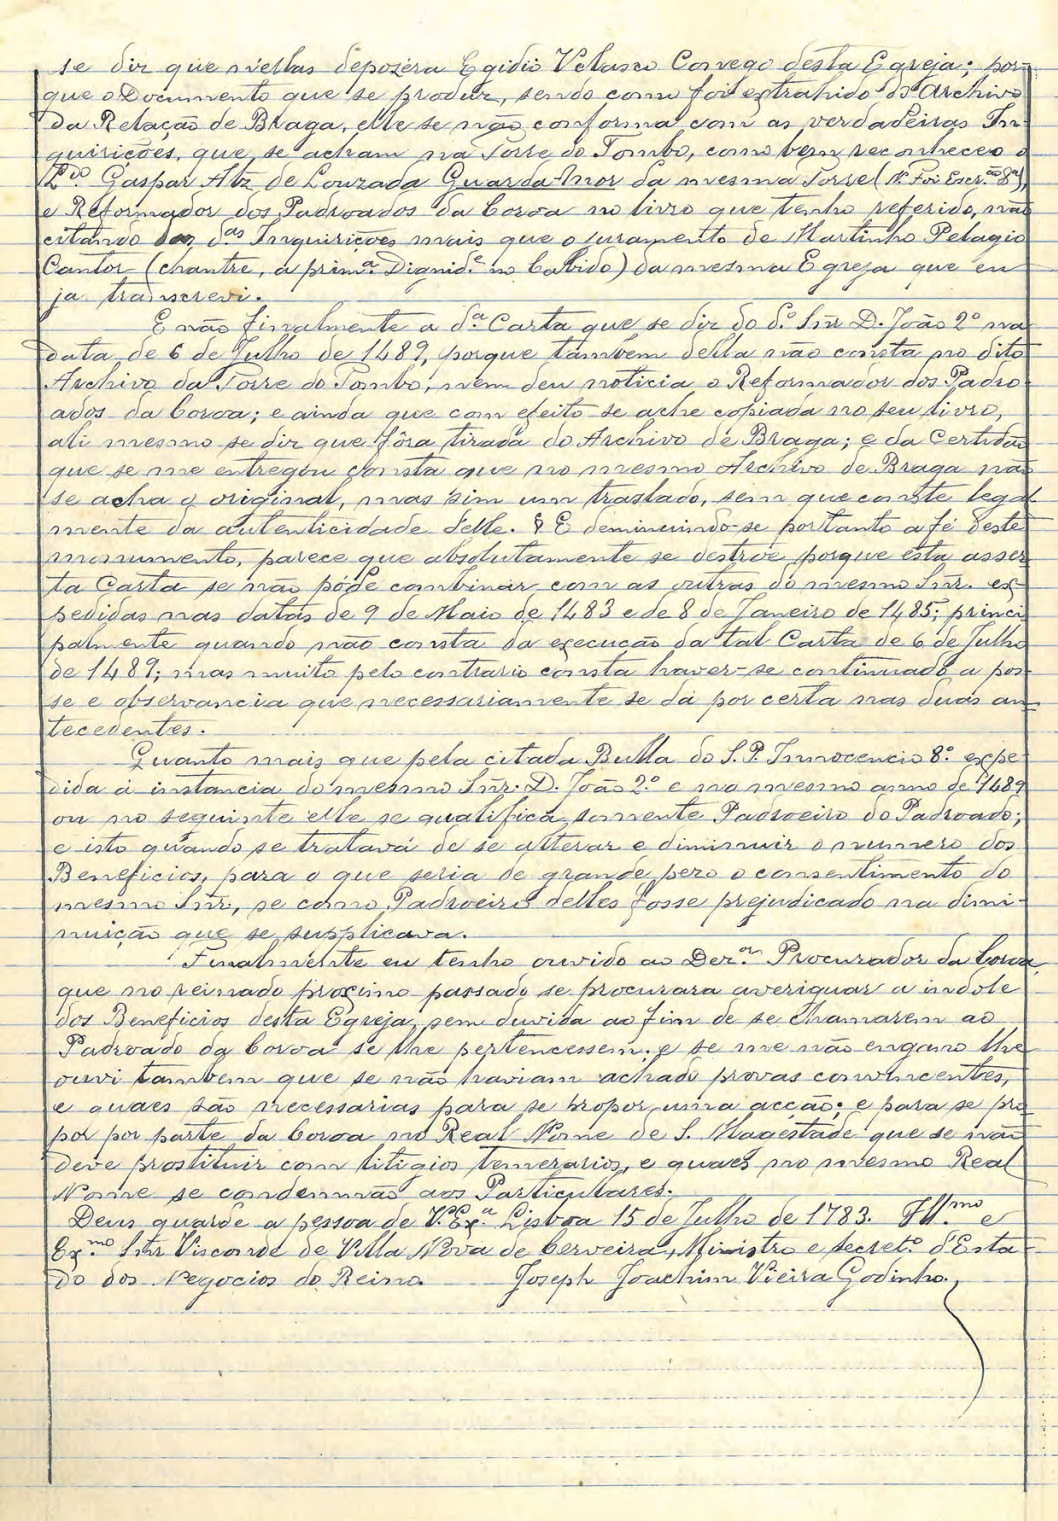 se diz que n'ellas depozéra Egidio Velasco Conego desta Egreja; por
que o Documento que se produz, sendo como foi extrahido do Archivo
da Relação de Braga, elle se não conforma com as verdadeiras In-
quirições, que se acham na Torre do Tombo, como bem reconheceo o
L.do Gaspar Alz de Louzada Guarda-Mor da mesma Torre (N. Foi Escr.am 8ª),
e Reformador dos Padroados da Coroa no livro que tenho referido, não
citando das d.as Inquirições mais que o juramento de Martinho Pelagio
Cantor (chantre, a prim.a Dignid.e no Cabido) da mesma Egreja que eu
ja transcrevi.
E não finalmente a d.a Carta que se diz do d.o Snr D. João 2º na
data de 6 de Julho de 1489, porque tambem della não consta no dito
Archivo da Torre do Tombo, nem deu noticia o Reformador dos Padro-
ados da Coroa; e ainda que com efeito se ache copiada no seu livro,
ali mesmo se diz que fôra tirada do Archivo de Braga; e da Certidão
que se me entregou consta que no mesmo Archivo de Braga não
se acha o original, mas sim um traslado, sem que conste legal
mente da autenticidade delle. & E deminuindo-se portanto a fé deste
monumento, parece que absolutamente se destroe porque esta asser
ta Carta se não póde combinar com as outras do mesmo Snr. ex-
pedidas nas datas de 9 de Maio de 1483 e de 8 de Janeiro de 1485; princi
palmente quando não consta da execução da tal Carta de 6 de Julho
de 1489; mas muito pelo contrario consta haver-se continuado a pos-
se e observancia que necessariamente se dá por certa nas duas an-
tecedentes.
Quanto mais que pela citada Bulla do S. P. Innocencio 8.º expe
dida á instancia do mesmo Snr. D. João 2.º e no mesmo anno de 1489
ou no seguinte elle se qualifica somente Padroeiro do Padroado;
e isto quando se tratava de se alterar e diminuir o numero dos
Beneficios, para o que seria de grande pezo o consentimento do
mesmo Snr, se como Padroeiro delles fosse prejudicado na dimi-
nuição que se supplicava.
Finalmente eu tenho ouvido ao Dez.or Procurador da Coroa,
que no reinado proximo passado se procurara averiguar a indole
dos Beneficios desta Egreja, sem duvida ao fim de se chamarem ao
Padroado da Coroa se lhe pertencessem; e se me não engano lhe
ouvi tambem que se não haviam achado provas convincentes,
e quaes são necessarias para se propor uma acção; e para se pro
por por parte da Coroa no Real Nome de S. Magestade que se não
deve prostituir com litigios temerarios, e quaes no mesmo Real
Nome se condemnão aos Particulares.
Deus guarde a pessoa de V.Ex.a Lisboa 15 de Julho de 1783. Ill.mo e
Ex.mo Snr Visconde de Villa Nova de Cerveira, Ministro e secret.o d'Esta-
do dos Negocios do Reino. Joseph Joachim Vieira Godinho.